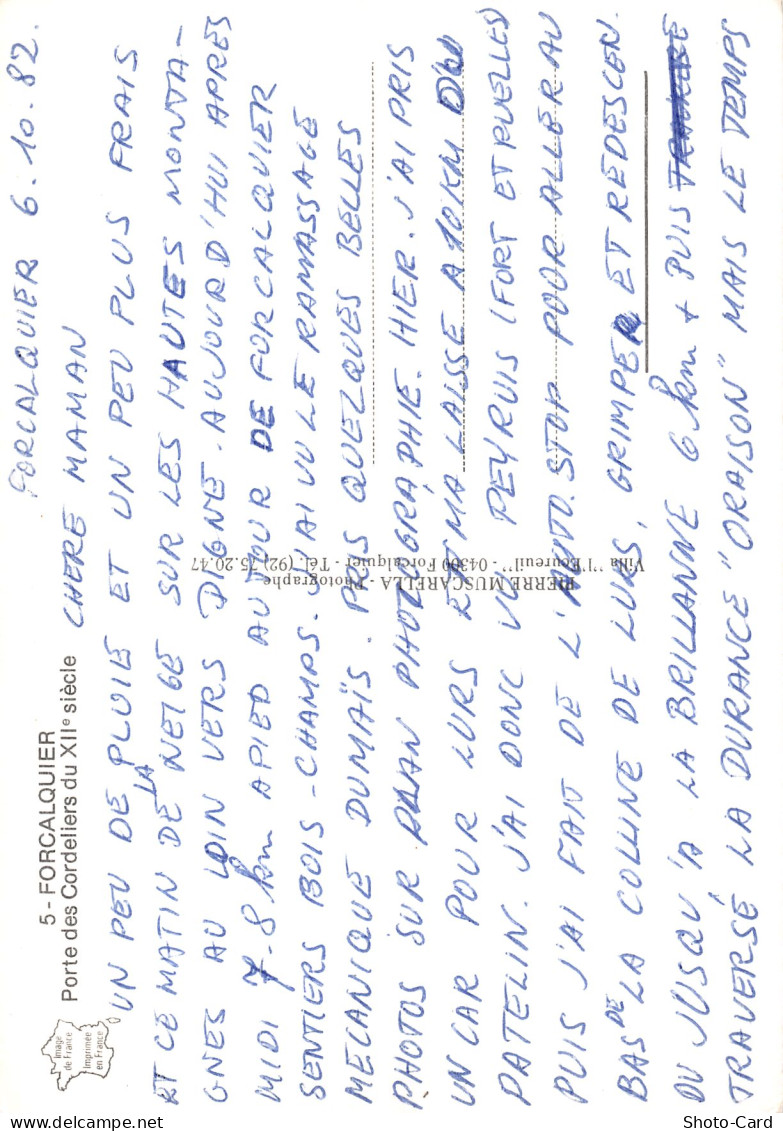 5 - FORCALQUIER
Porte des Cordeliers du XIIe siècle
Image
de France
Imprimée
en France
PIERRE MUSCARELLA - Photographe
Villa "l'Ecureuil" - 04300 Forcalquier - Tél. (92) 75.20.47
FORCALQUIER 6.10.82.
CHERE MAMAN
UN PEU DE PLUIE ET UN PEU PLUS FRAIS
ET CE MATIN DE LA NEIGE SUR LES HAUTES MONTA-
GNES AU LOIN VERS DIGNE. AUJOURD'HUI APRES
MIDI 7-8 km A PIED AUTOUR DE FORCALQUIER
SENTIERS BOIS - CHAMPS. J'AI VU LE RAMASSAGE
MECANIQUE DU MAÏS. PRIS QUELQUES BELLES
PHOTOS SUR PLAN PHOTOGRAPHIE. HIER. J'AI PRIS
UN CAR POUR LURS ET M'A LAISSE A 10 KM DU
PATELIN. J'AI DONC VU PEYRUIS (FORT ET RUELLES)
PUIS J'AI FAIT DE L'AUTO.STOP POUR ALLER AU
BAS DE LA COLLINE DE LURS, GRIMPER ET REDESCEN.
DU JUSQU'A LA BRILLANNE 6 km + PUIS
TRAVERSÉ LA DURANCE "ORAISON" MAIS LE TEMPS
Shoto-Card.com